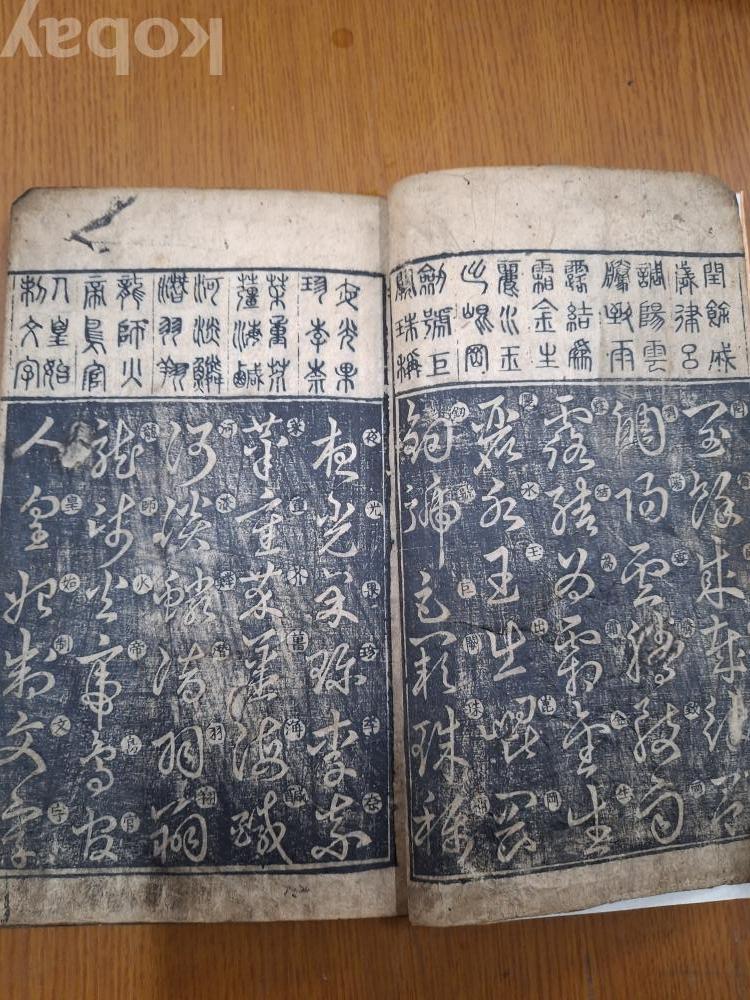 kobay
閏餘成
歲律呂
調陽雲
騰致雨
露結爲
霜金生
麗水玉
出崐岡
劍號巨
闕珠稱
閏餘成歲律呂
調陽雲騰致雨
露結爲霜金生
麗水玉出崐岡
劍號巨闕珠稱
夜光果
珍李柰
菜重芥
薑海鹹
河淡鱗
潛羽翔
龍師火
帝鳥官
人皇始
制文字
夜光果珍李柰
菜重芥薑海鹹
河淡鱗潛羽翔
龍師火帝鳥官
人皇始制文字